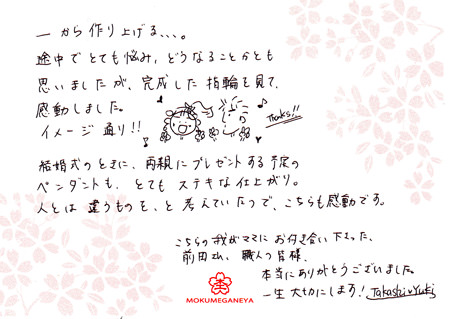 一から作り上げる、、、。
途中でとても悩み、どうなることかとも
思いましたが、完成した指輪を見て、
感動しました。
イメージ通り!!
Thanks!!
結婚式のときに、両親にプレゼントする予定の
ペンダントも、とてもステキな仕上がり。
人とは違うものを、と考えていたので、こちらも感動です。
こちらの我がママにお付き合い下さった、
前田さん、職人の皆様、
本当にありがとうございました。
一生大切にします! Takashi♡Yuki
MOKUMEGANEYA